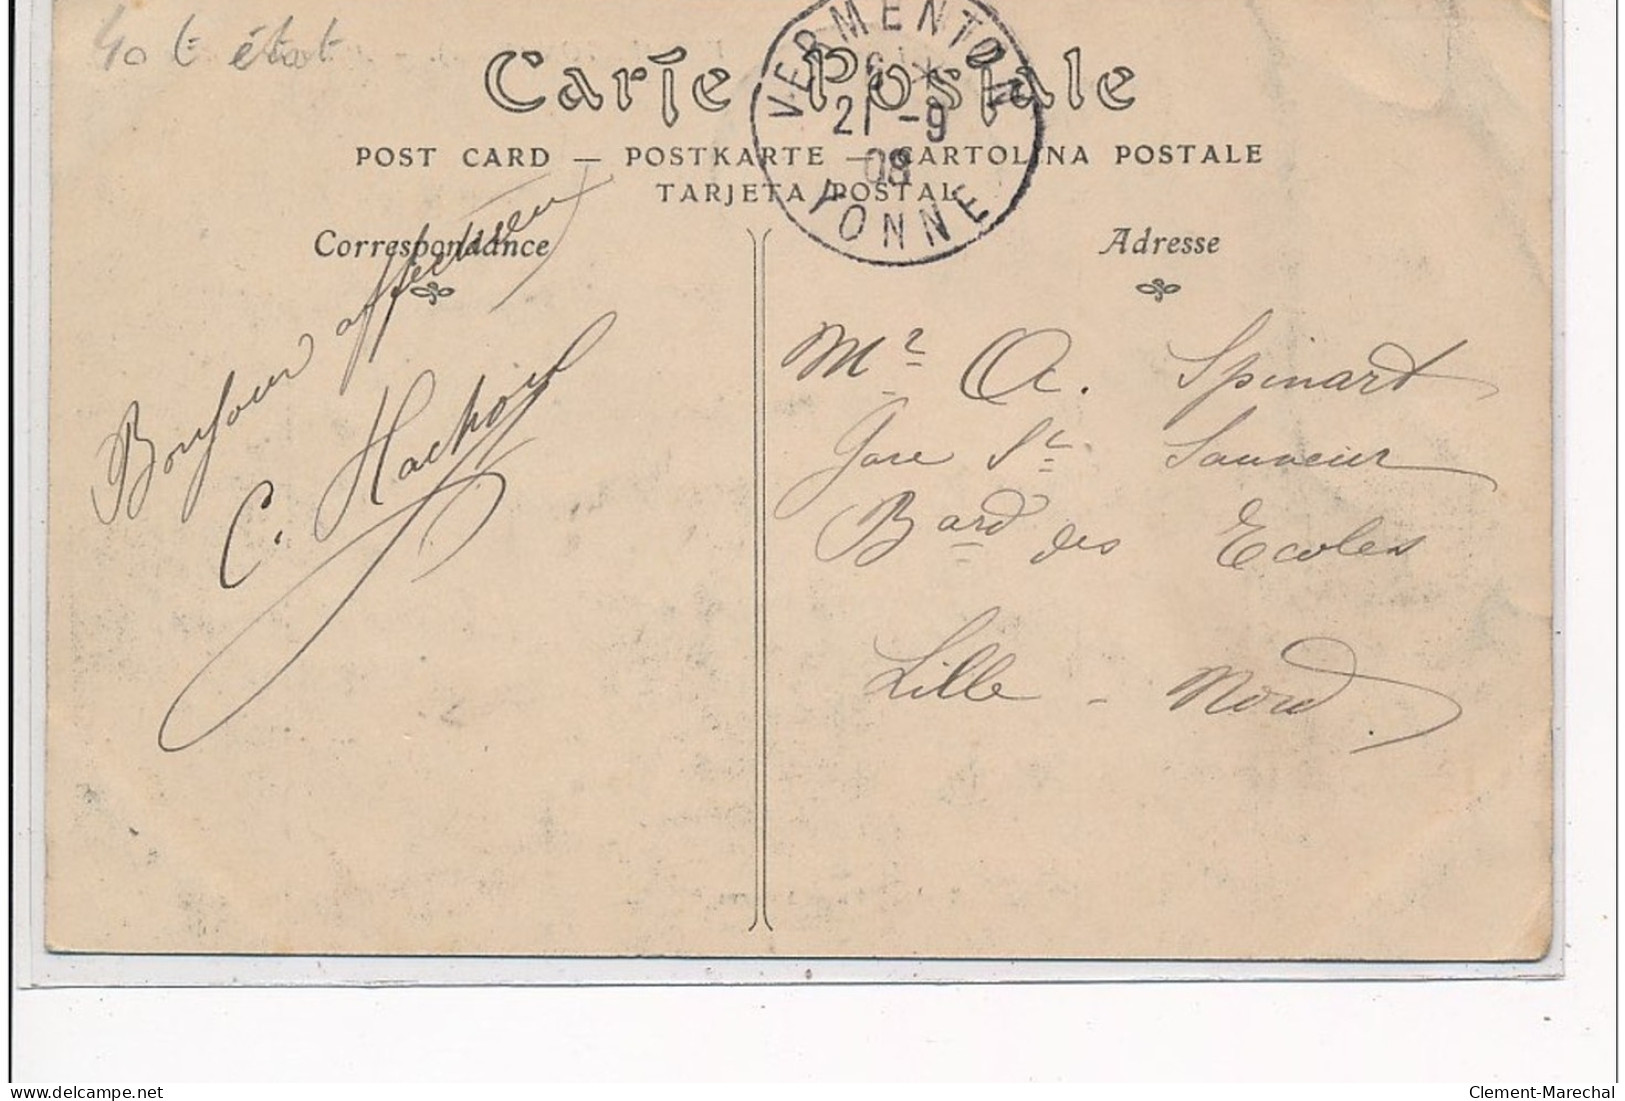 40 t état
Carte Postale
POST CARD — POSTKARTE — CARTOLINA POSTALE
TARJETA POSTAL
VERMENTON
21 -9
08
YONNE
Correspondance
Bonjour affectueux
C. Hachoyl
Adresse
Mr A. Spinart
Gare St Sauveur
Bard des Ecoles
Lille - Nord.
delcampe.net
Clement-Marechal